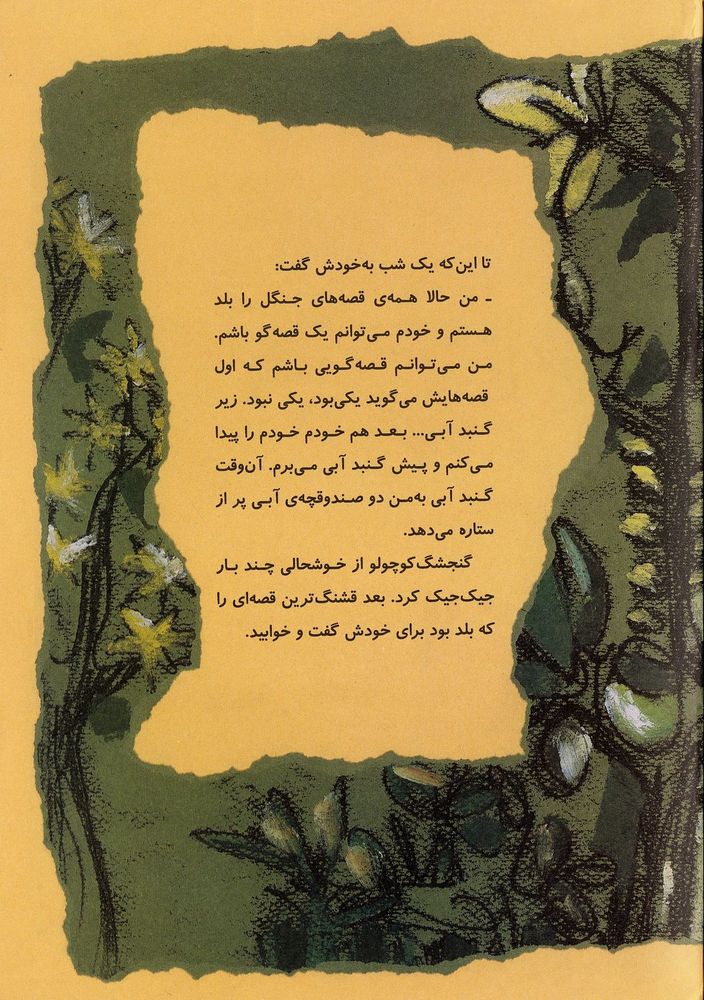 تا این‌که یک شب به‌خودش گفت:
ـ من حالا همه‌ی قصه‌های جنگل را بلد
هستم و خودم می‌توانم یک قصه‌گو باشم.
من می‌توانم قصه‌گویی باشم که اول
قصه‌هایش می‌گوید یکی‌بود، یکی نبود. زیر
گنبد آبی... بعد هم خودم خودم را پیدا
می‌کنم و پیش گنبد آبی می‌برم. آن‌وقت
گنبد آبی به‌من دو صندوقچه‌ی آبی پر از
ستاره می‌دهد.
گنجشگ‌کوچولو از خوشحالی چند بار
جیک‌جیک کرد. بعد قشنگ‌ترین قصه‌ای را
که بلد بود برای خودش گفت و خوابید.